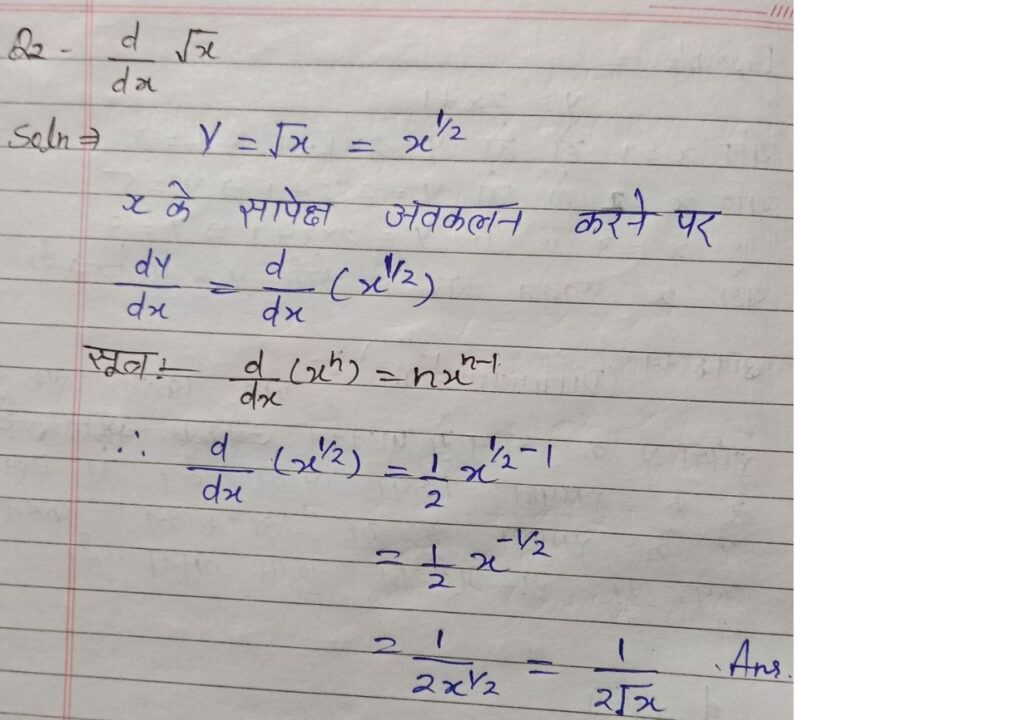 Q2 - d/dx √x
Soln ⇒ Y = √x = x^1/2
x के सापेक्ष अवकलन करने पर
dY/dx = d/dx (x^1/2)
सूत्र :- d/dx (x^n) = nx^n-1
∴ d/dx (x^1/2) = 1/2 x^1/2 - 1
= 1/2 x^-1/2
= 1/2x^1/2 = 1/2√x . Ans.